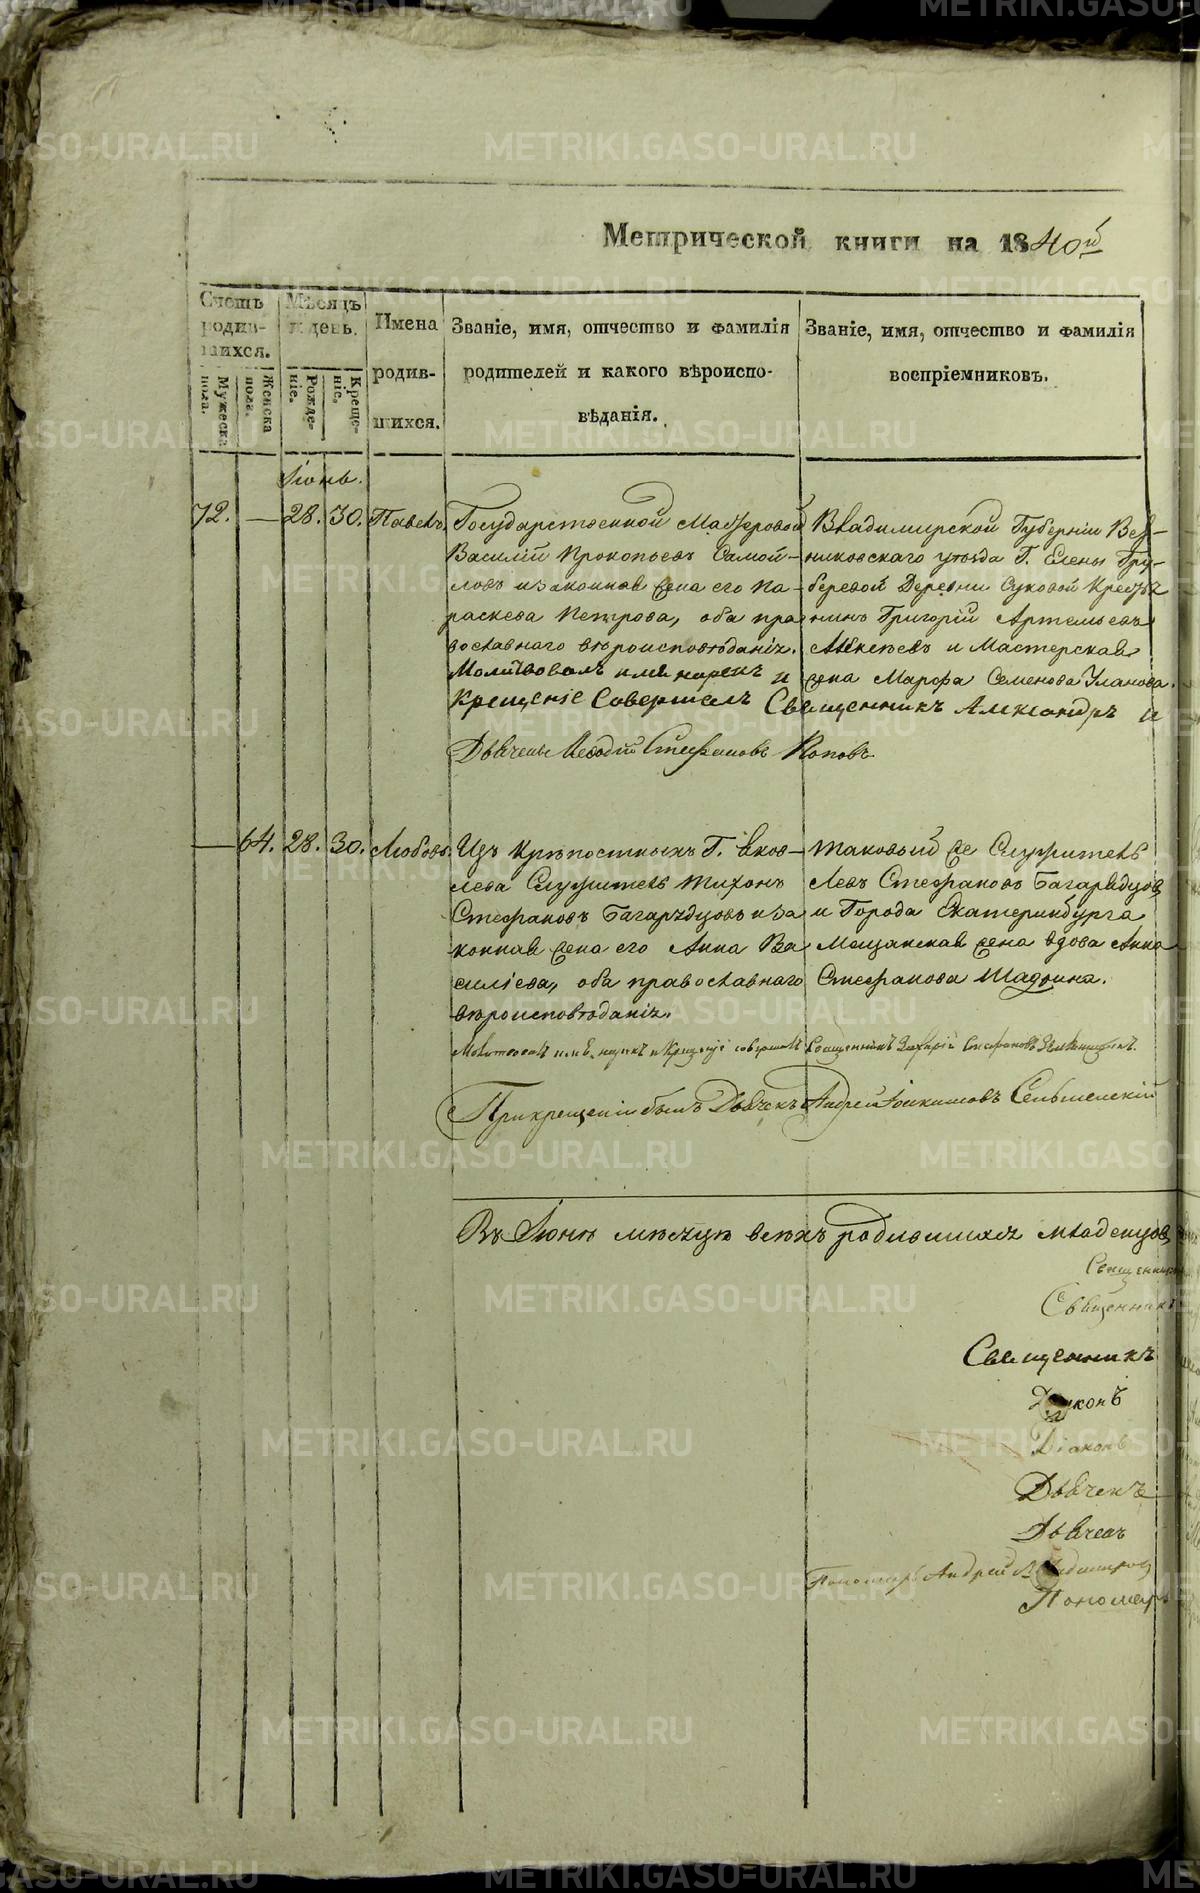 Метрической книги на 1840й
Счетъ родившихся.
Мѣсяцъ и день.
Имена родившихся.
Званіе, имя, отчество и фамилія родителей и какого вѣроисповѣданія.
Званіе, имя, отчество и фамилія воспріемниковъ.
Мужеска пола.
Женска пола.
Рожденіе.
Крещеніе.
Іюнь.
72. — 28. 30. Павелъ.
Государственной Мастеровой
Василій Прокопьевъ Самой-
ловъ и законная жена его Па-
раскева Петрова, оба пра-
вославнаго вѣроисповѣданія.
Владимирской Губерніи Вяз-
никовскаго уѣзда Г. Елены
Деревни Суковой Крестья-
нинъ Григорій Артемьевъ
Алексѣевъ и Мастерская
жена Марфа Семенова Уланова.
Молитвовалъ имя нарекъ и
Крещеніе Совершалъ Священникъ Александръ и
Дьячекъ Меѳодій Стефановъ Поповъ
— 64. 28. 30. Любовь.
Изъ Крѣпостныхъ Г. Яков-
лева Служитель Тихонъ
Стефановъ Багарядцовъ и за-
конная жена его Анна Ва-
силіева, оба православнаго
вѣроисповѣданія.
таковый же Служитель
Левъ Стефановъ Багарядцовъ
и Города Екатеринбурга
Мещанская жена вдова Анна
Стефанова Шадрина.
Молитвовалъ имя нарекъ и Крещеніе совершалъ Священникъ Захарій Стефановъ
При крещеніи былъ Дьячекъ Андрей Іоакимовъ
Въ Іюнѣ мѣсяцѣ всѣхъ родившихся младенцовъ
Священникъ
Священникъ
Священникъ
Діаконъ
Діаконъ
Дьячекъ
Дьячекъ
Пономарь Андрей
Пономарь
METRIKI.GASO-URAL.RU